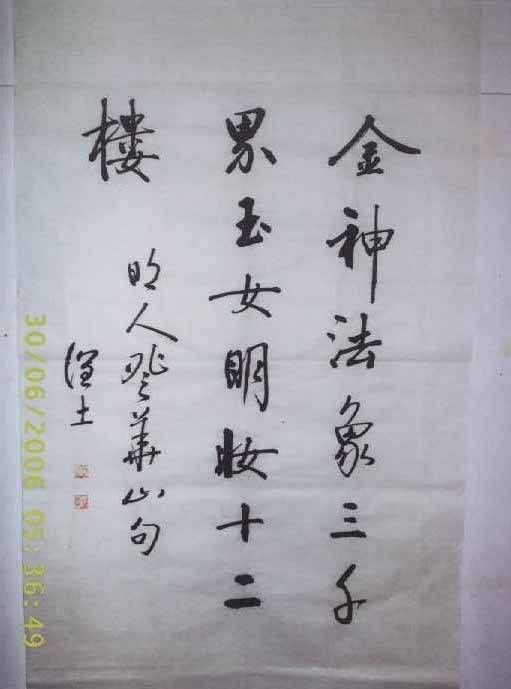 金神法象三千
界玉女明妝十二
樓
明人登華山句
30/06/2006 05:36:49